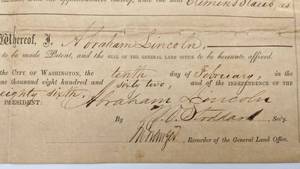 Whereof, I, Abraham Lincoln,
to be made Patent, and the SEAL OF THE GENERAL LAND OFFICE to be hereunto affixed.
the CITY OF WASHINGTON, the tenth day of February, in
one thousand eight hundred and sixty two, and of the INDEPENDENCE OF THE
eighty sixth.
PRESIDENT: Abraham Lincoln
By Stoddard Sec'y.
Recorder of the General Land Office.